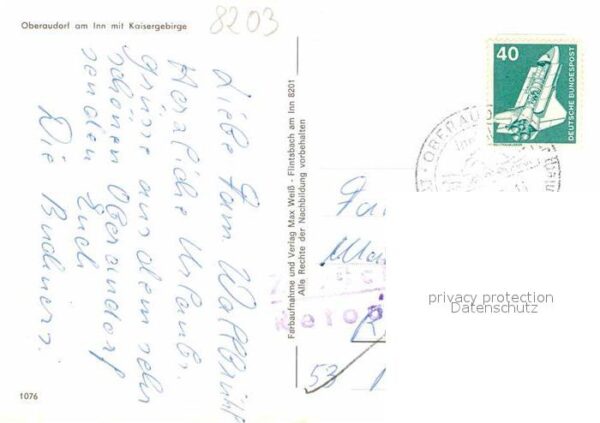 Oberaudorf am Inn mit Kaisergebirge
8203
Liebe Fam. Wallbrühl
Herzliche Urlaubs
grüsse aus dem sehr
schönen Oberaudorf
senden Euch
Die Budiners.
1076
Farbaufnahme und Verlag Max Weiß - Flintsbach am Inn 8201
Alle Rechte der Nachbildung vorbehalten
40
DEUTSCHE BUNDESPOST
OBERAUDO
Inn
Fa
53
privacy protection
Datenschutz